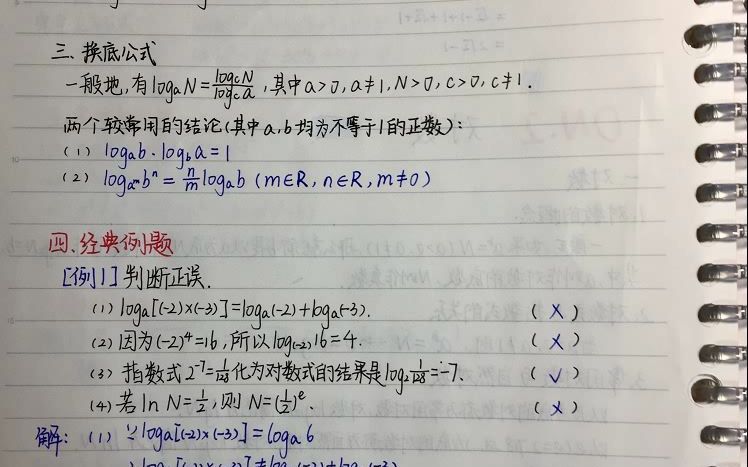 三、换底公式
一般地,有logₐN=log꜀N/log꜀a,其中a>0,a≠1,N>0,c>0,c≠1.
两个较常用的结论(其中a,b均为不等于1的正数):
(1) logₐb·log_b a=1
(2) log_{a^m}b^n=n/m logₐb (m∈R,n∈R,m≠0)
四.经典例题
[例1]判断正误.
(1) logₐ[(-2)×(-3)]=logₐ(-2)+logₐ(-3). (×)
(2)因为(-2)⁴=16,所以log₍₋₂₎16=4. (×)
(3) 指数式2⁻⁷=1/128化为对数式的结果是log₂1/128=-7. (√)
(4)若 ln N=1/2,则 N=(1/2)^e. (×)
解: (1) ∵logₐ[(-2)×(-3)]=logₐ6